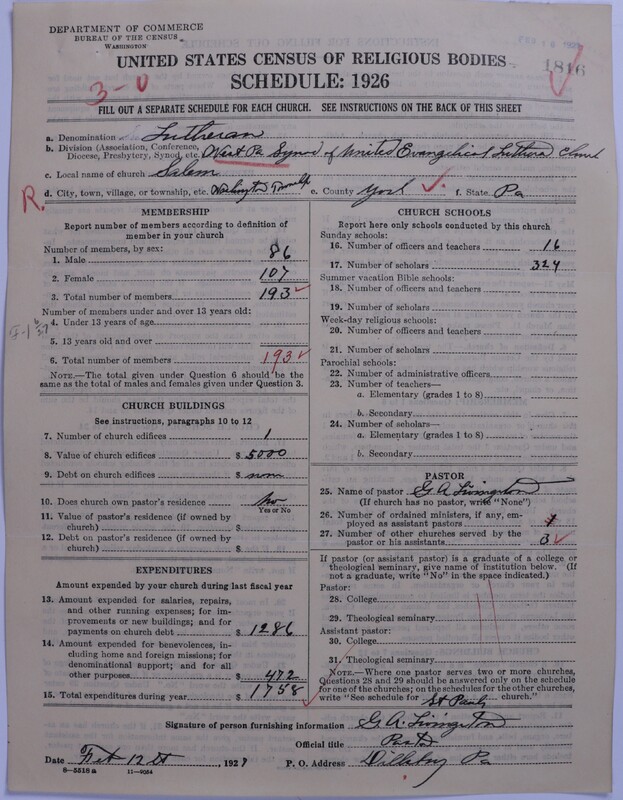 DEPARTMENT OF COMMERCE
BUREAU OF THE CENSUS
WASHINGTON
UNITED STATES CENSUS OF RELIGIOUS BODIES
1816
SCHEDULE: 1926
3-0
FILL OUT A SEPARATE SCHEDULE FOR EACH CHURCH. SEE INSTRUCTIONS ON THE BACK OF THIS SHEET
a. Denomination Lutheran
b. Division (Association, Conference, Diocese, Presbytery, Synod, etc. West Pa Synod of United Evangelical Luthern Church
c. Local name of church Salem
R.
d. City, town, village, or township, etc. Washington e. County York f. State Pa
MEMBERSHIP
Report number of members according to definition of
member in your church
Number of members, by sex:
1. Male 86
2. Female 107
3. Total number of members 193
Number of members under and over 13 years old:
4. Under 13 years of age
5. 13 years old and over
6. Total number of members 193
NOTE.—The total given under Question 6 should be the
same as the total of males and females given under Question 3.
CHURCH BUILDINGS
See instructions, paragraphs 10 to 12
7. Number of church edifices 1
8. Value of church edifices $ 5000
9. Debt on church edifices $ none
10. Does church own pastor's residence No
Yes or No
11. Value of pastor's residence (if owned by
church) $
12. Debt on pastor's residence (if owned by
church) $
EXPENDITURES
Amount expended by your church during last fiscal year
13. Amount expended for salaries, repairs,
and other running expenses; for im-
provements or new buildings; and for
payments on church debt $ 1286
14. Amount expended for benevolences, in-
cluding home and foreign missions; for
denominational support; and for all
other purposes $ 472
15. Total expenditures during year $ 1758
CHURCH SCHOOLS
Report here only schools conducted by this church
Sunday schools:
16. Number of officers and teachers 16
17. Number of scholars 324
Summer vacation Bible schools:
18. Number of officers and teachers
19. Number of scholars
Week-day religious schools:
20. Number of officers and teachers
21. Number of scholars
Parochial schools:
22. Number of administrative officers
23. Number of teachers—
a. Elementary (grades 1 to 8)
b. Secondary
24. Number of scholars—
a. Elementary (grades 1 to 8)
b. Secondary
PASTOR
25. Name of pastor G. A. Livingston
(If church has no pastor, write "None")
26. Number of ordained ministers, if any, em-
ployed as assistant pastors
27. Number of other churches served by the
pastor or his assistants 3
If pastor (or assistant pastor) is a graduate of a college or
theological seminary, give name of institution below. (If
not a graduate, write "No" in the space indicated.)
Pastor:
28. College
29. Theological seminary
Assistant pastor:
30. College
31. Theological seminary
NOTE.—Where one pastor serves two or more churches,
Questions 28 and 29 should be answered only on the schedule
for one of the churches; on the schedules for the other churches,
write "See schedule for St Pauls church."
Signature of person furnishing information G. A. Livingston
Official title Pastor
Date 192 P. O. Address Dillsburg Pa
8—5518 a 11—9054